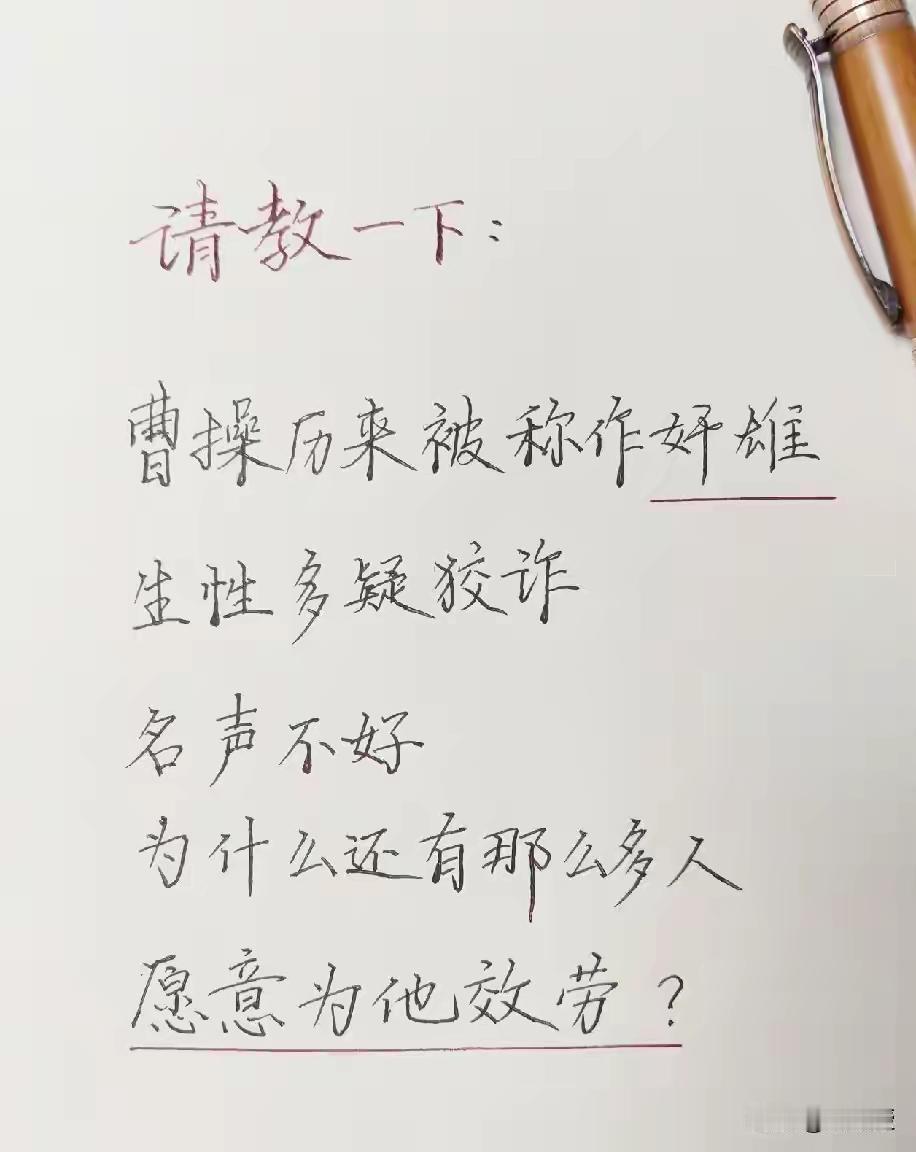 请教一下：
曹操历来被称作奸雄
生性多疑狡诈
名声不好
为什么还有那么多人
愿意为他效劳？